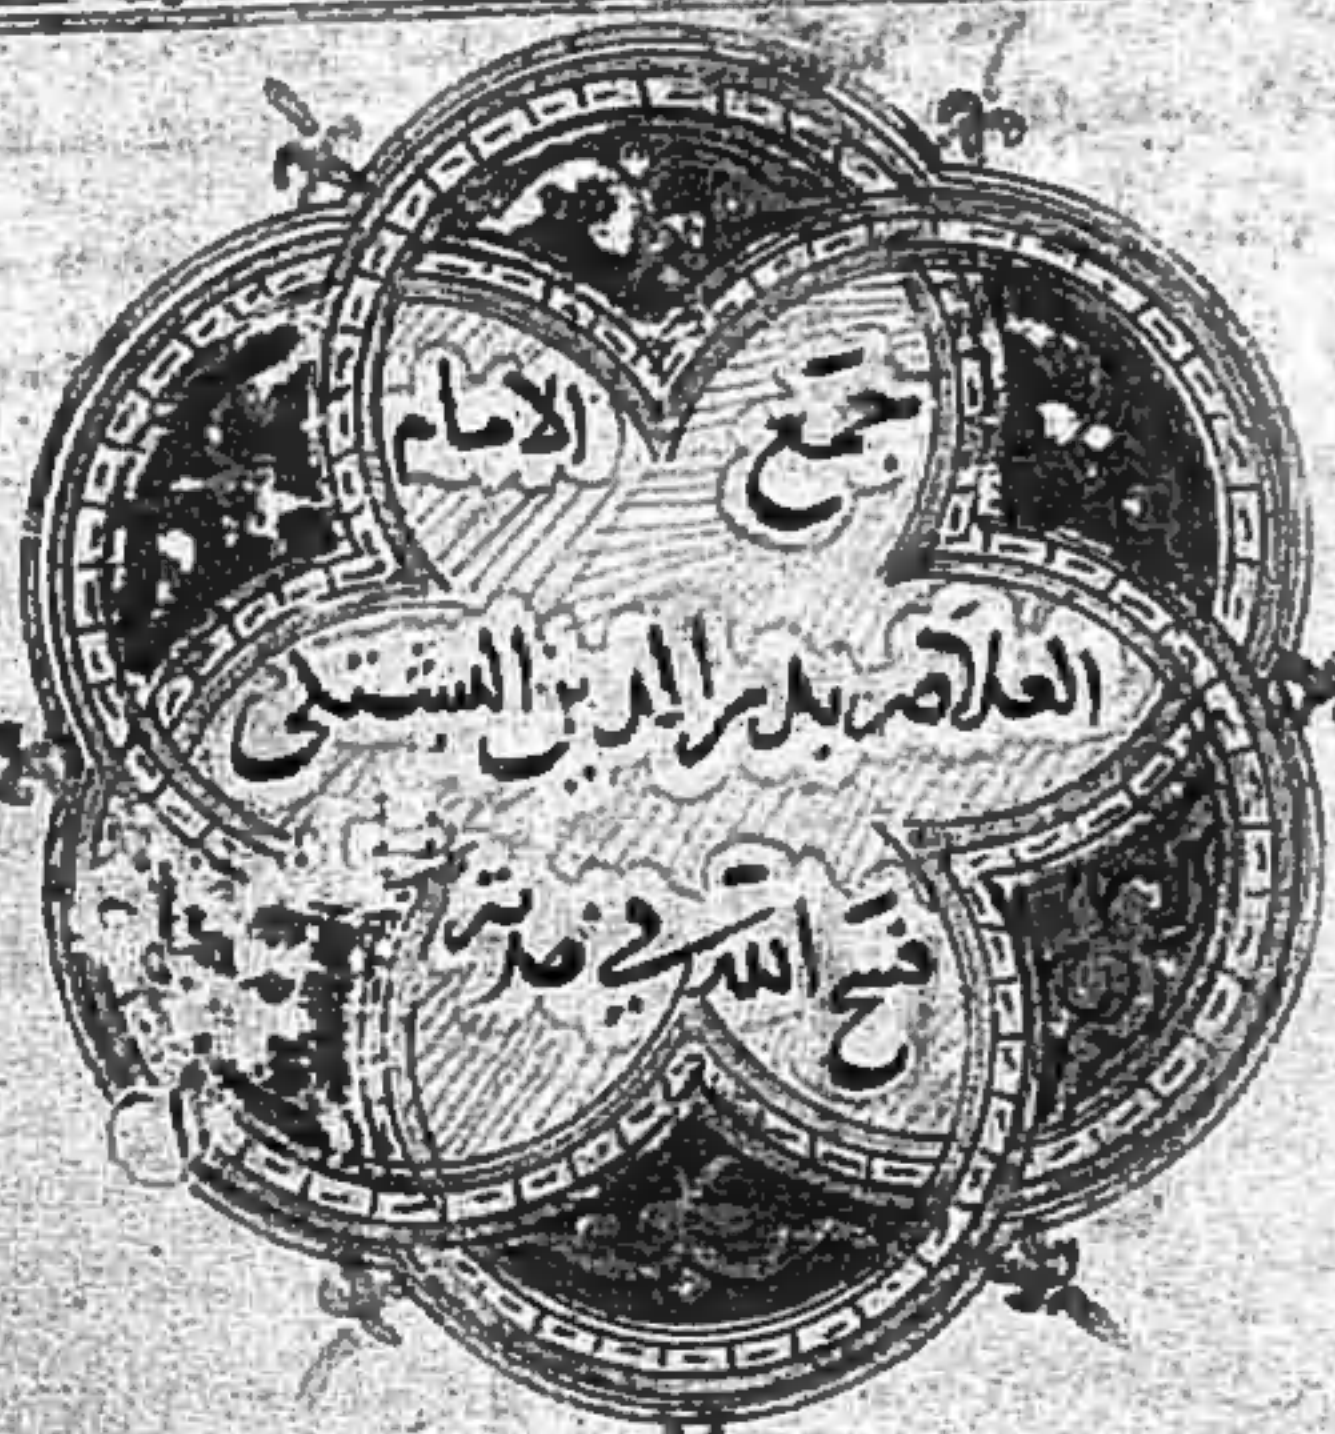 جمع الامام
العلامه بدر الدين الشبلى
فسح الله في مدته